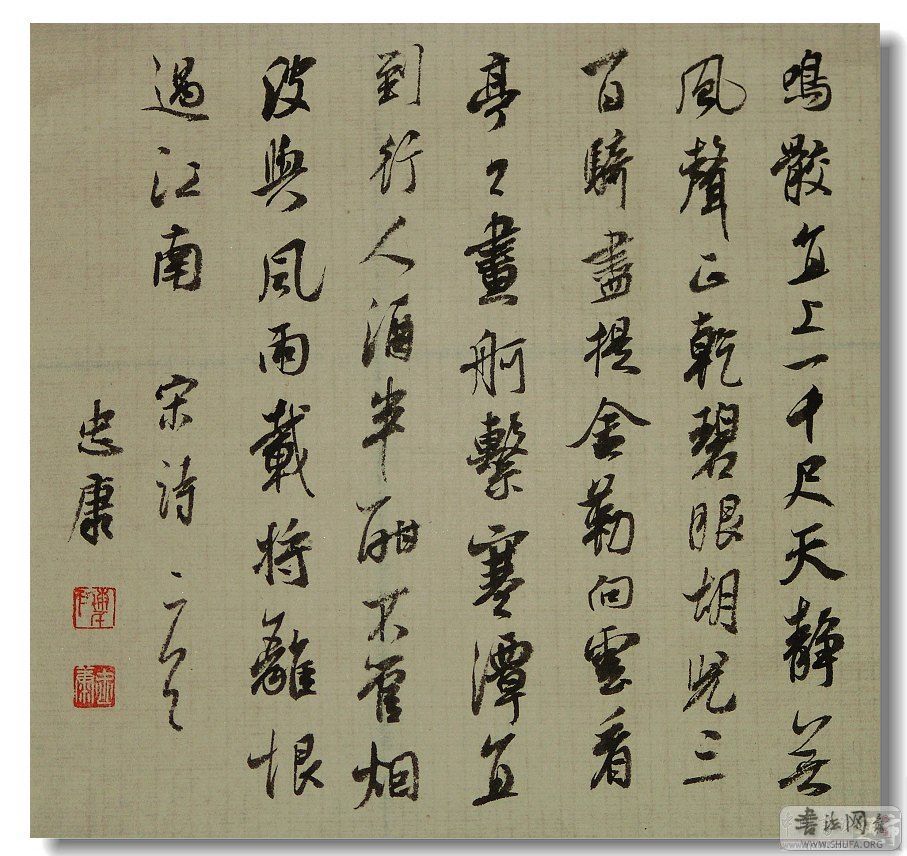 鳴骹直上一千尺天靜無
風聲正乾碧眼胡兒三
百騎盡提金勒向雲看
亭々畫舸繫寒潭直
到行人酒半酣不管烟
波與風雨載將離恨
過江南 宋詩二首
忠康
書法网
WWW.SHUFA.ORG